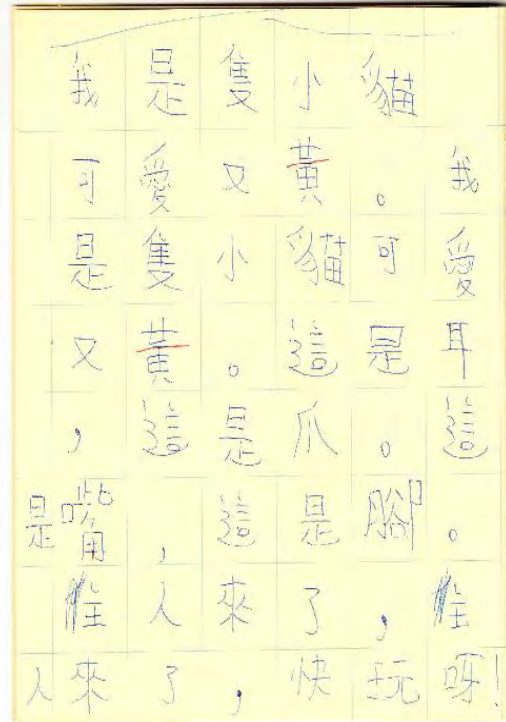 我是隻小貓
可愛又黃。我
是隻小貓可愛
又黃。這是耳
,這是爪。這
是嘴,這是腳。
惟人來了,惟
人來了,快玩呀!